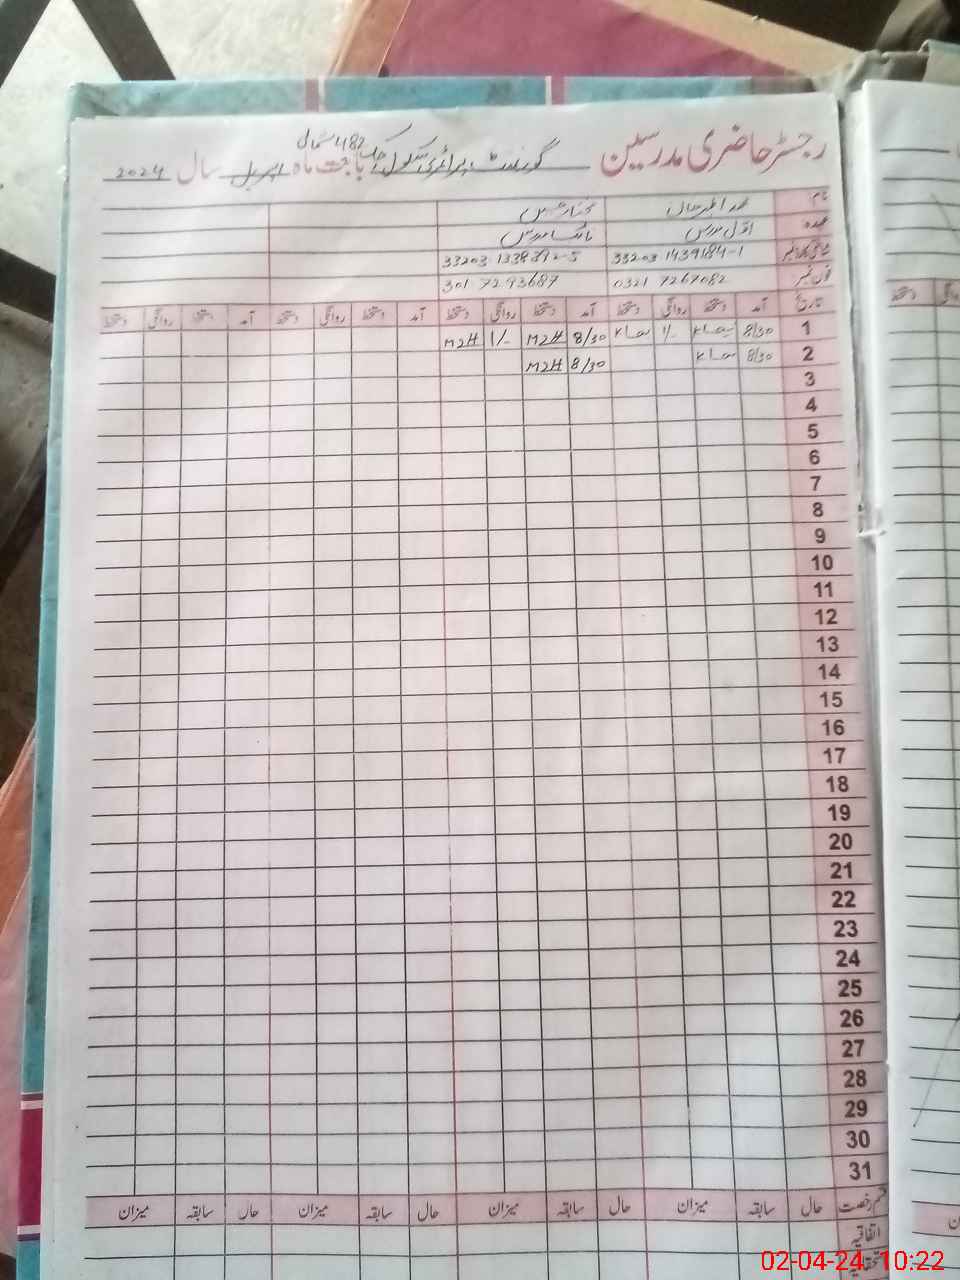 رجسٹر حاضری مدرسین گورنمنٹ پرائمری سکول چک 482 شمالی بابت ماہ اپریل سال 2024
نام
عہدہ اول مدرس نائب مدرس
شناختی کارڈ نمبر 33203 1439184-1 33203
فون نمبر 0321 7267082 301 7293687
تاریخ آمد دستخط روانگی دستخط آمد دستخط روانگی دستخط آمد دستخط روانگی دستخط آمد دستخط روانگی دستخط
1 8/30 1/- 8/30 M2H 1/- M2H
2 8/30 8/30 M2H
3
4
5
6
7
8
9
10
11
12
13
14
15
16
17
18
19
20
21
22
23
24
25
26
27
28
29
30
31
قسم رخصت حال سابقہ میزان حال سابقہ میزان حال سابقہ میزان حال سابقہ میزان
اتفاقیہ
02-04-24 10:22